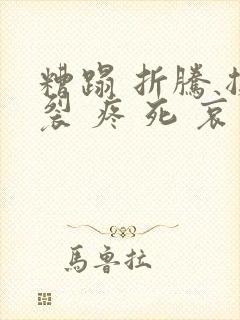 糟蹋 折騰
裂 疼 死 哀
馬魯拉